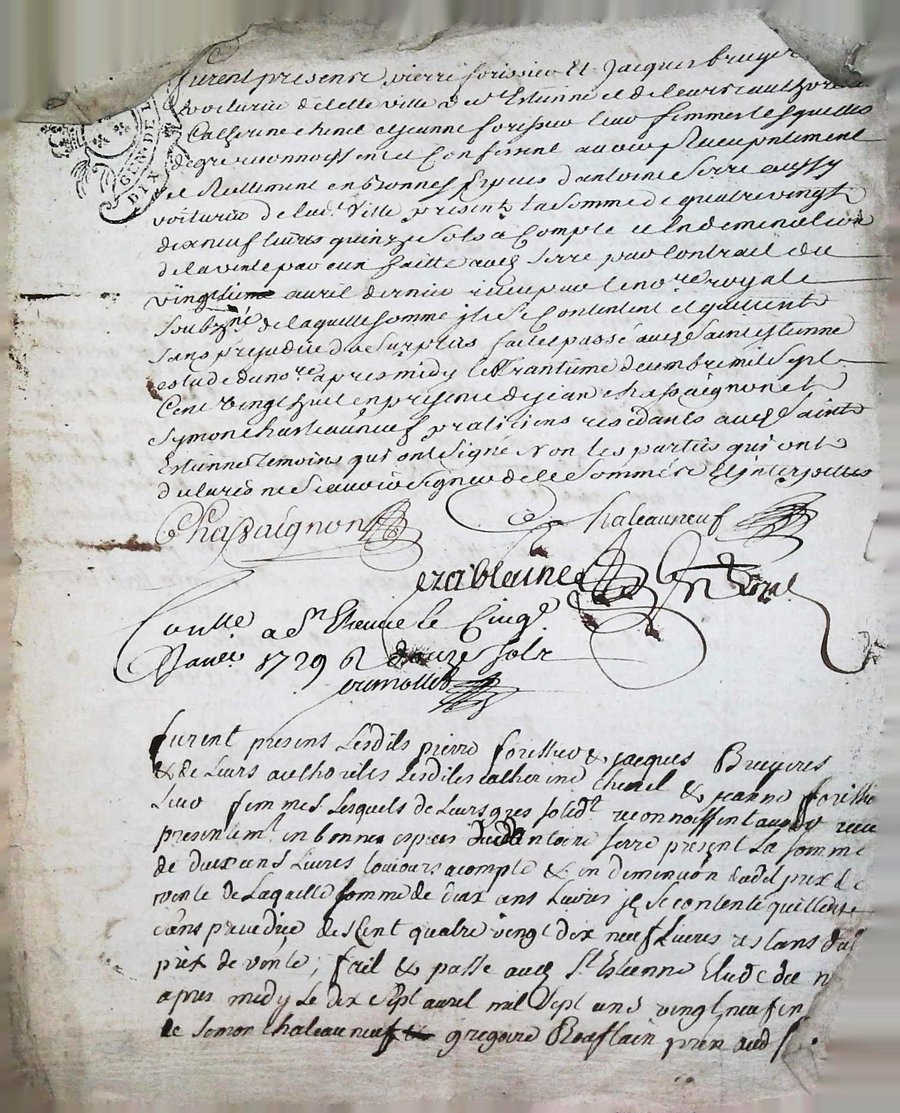 GEN. DE L
DIX
furent presents pierre forissier Et Jacques bruyer
voiturier de cette ville de st Estienne et de leurs authorite
Catherine chenel et jeanne forissier leurs femmes lesquelles
de gre reconnoissent et Confessent avoir Receu presentement
et Reellement en bonnes Especes d'antoine Serre aussy
voiturier de lad. Ville present la somme de quatre vingt
dix neuf livres quinze sols a Compte et En deminution
de la vente par eux faitte aud Serre par Contrait du
vingtieme avril dernier receu par le nore royale
Soubzne de laquelle somme jls se Contentent et quittent
Sans prejudice du Surplus fait et passé aud Saint estienne
estude du nore apres midy le trantieme decembre mil Sept
Cent Vingt huit en presence de jean Chassaignon et
Symon chasteauneuf pratitiens residants aud Saint
Estienne temoins qui ont signé Non les parties qui ont
dclaré ne Scavoir signer de ce Sommé et jnterpellés
Chassaignon Chateauneuf
ezciblaine nre Royal
Conlle a St Etienne le Cinqe
Janer 1729 R douze sols
crimollet
furent presens Lesdits pierre forissier & jacques Bruyeres
& de Leurs authorites Lesdites catherine Chenel & jeanne forissie
Leur femmes Lesquels de Leurs gres solidt reconnoissent avoir receu
presentemt en bonnes especes dud antoine Serre present La somme
de deux cens Livres toujours a compte & en diminuon dud prix de
vente de Laquelle somme de deux cens Livres jls se contente quittent
sans prejudice des Cent quatre vingt dix neuf Livres restans dud
prix de vente, fait & passe aud St Estienne Etude du n
apres midy le dix sept avril mil sept cens vingt neuf en
de Simon Chateauneuf & gregoire Roaflain pren aud